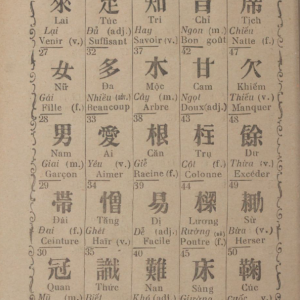 來 足 知 旨 席
Lai Túc Tri Chỉ Tịch
Lại Đủ (adj.) Hay Ngon (m.) Chiếu
Venir (v.) Suffisant Savoir (v.) Bon goût Natte (f.)
27
女 多 木 甘 欠
Nữ Đa Mộc Cam Khiếm
Gái Nhiều Cây (m.) Ngọt Thiếu (v.)
Fille (f.) Beaucoup Arbre Doux (adj.) Manquer
28 33 38 43 48
男 愛 根 餘
Nam Ái Căn Trụ Dư
Giai (m.) Yêu (v.) Giễ Cột (f.) Thừa (v.)
Garçon Aimer Racine (f.) Colonne Excéder
29 34
帶 憎 易 樑 鋤
Đái Tăng Dị Lương Sừ
Đai (f.) Ghét Dễ (adj.) Bừa (v.)
Ceinture Haïr (v.) Facile Poutre (f.) Herser
30 35 40 45 50
冠 識 難 床 鞠
Quan Thức Nan Sàng Cúc
Mũ (m.) Biết Khó (adj.)